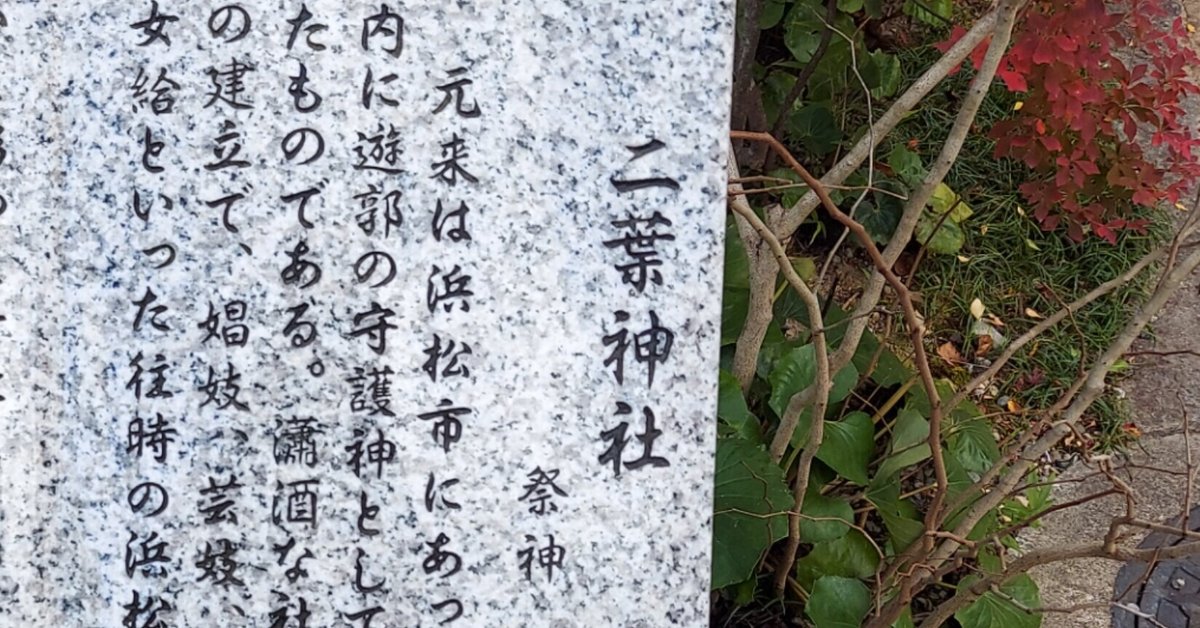 二葉神社
祭神
元来は浜松市にあっ
内に遊郭の守護神として
たものである。瀟洒な社
の建立で、娼妓、芸妓、
女給といった往時の浜松